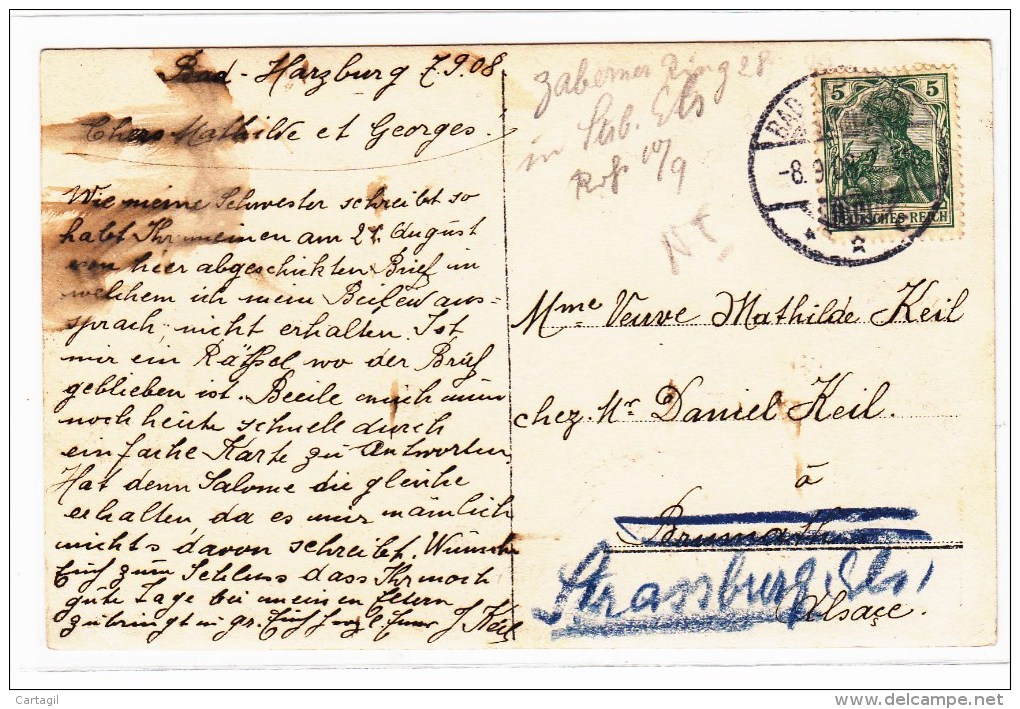 Bad-Harzburg 7.9.08
Chers Mathilde et Georges.
Wie meine Schwester schreibt so
habt Ihr meinen am 21. August
von hier abgeschickten Brief in
welchem ich mein Beileid aus-
sprach, nicht erhalten. Ist
mir ein Räthsel wo der Brief
geblieben ist. Beeile mich nun
noch heute schnell durch
einfache Karte zu antworten
Hat denn Salome die gleiche
erhalten, da es mir nämlich
nichts davon schreibt. Wünsche
Euch zum Schluss dass Ihr noch
gute Tage bei meinen Eltern
zubringt u. gr. Euch herzl. Euer J. Keil
Zaberner Ring 28
in Stsb. Els
10/9
BAD
-8.9.08
5 5
DEUTSCHES REICH
Mme Veuve Mathilde Keil
chez Mr Daniel Keil.
à
Brumath
Strassburg Els.
Alsace.
Cartagil
www.delcampe.net